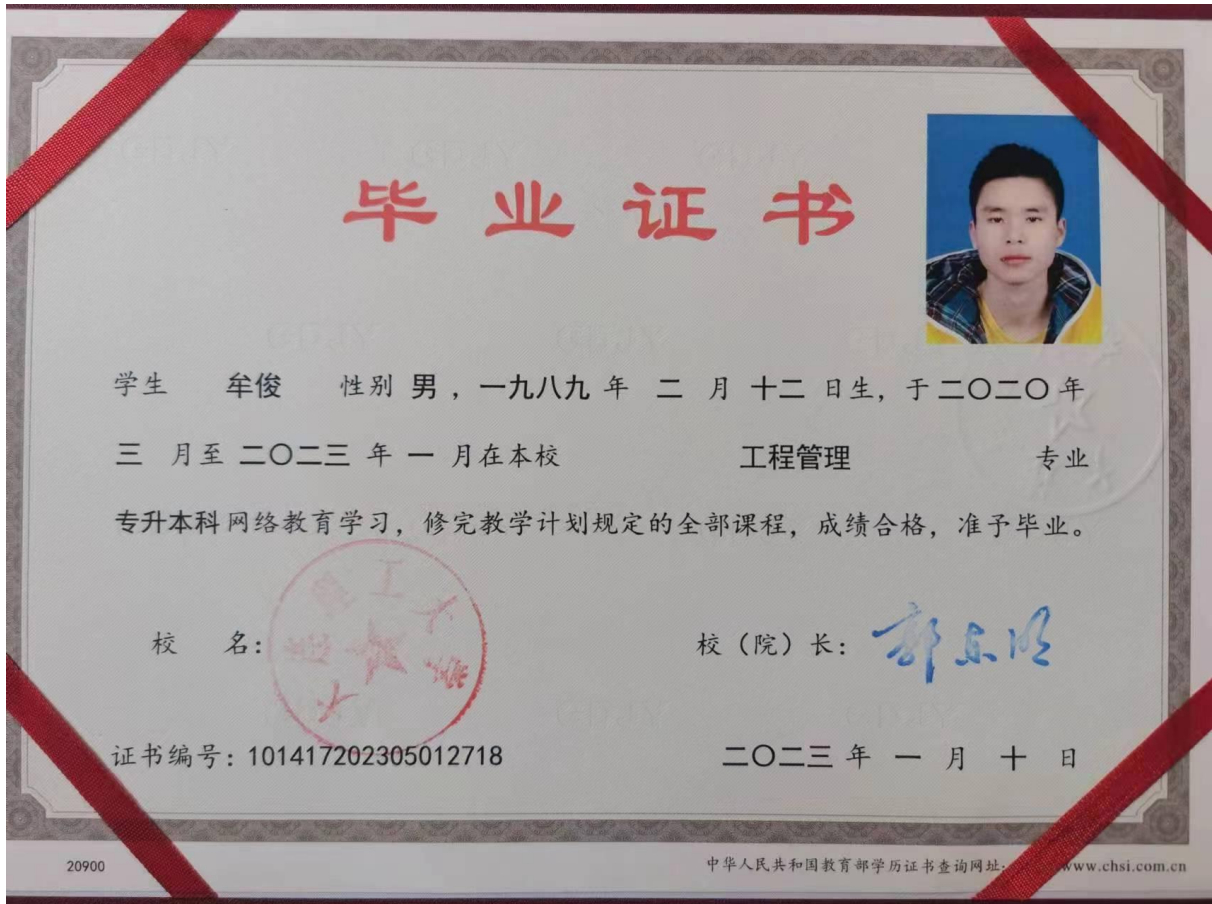 毕业证书
学生 牟俊 性别 男，一九八九 年 二 月 十二 日生，于二〇二〇年
三 月至 二〇二三 年 一 月在本校 工程管理 专业
专升本科网络教育学习，修完教学计划规定的全部课程，成绩合格，准予毕业。
校 名：
大连理工大学
校（院）长：郭东明
证书编号：101417202305012718
二〇二三 年 一 月 十 日
20900
中华人民共和国教育部学历证书查询网址：www.chsi.com.cn